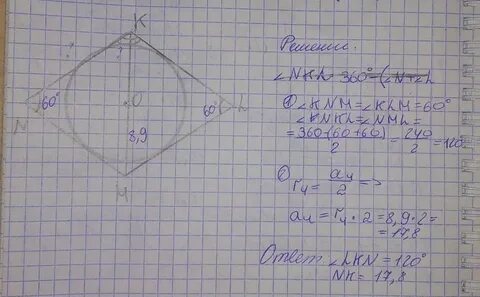 K
?
?
60°
60°
O
L
N
8,9
M
Решение.
∠NKL = 360° - (∠N+∠L
① ∠KNM=∠KLM=60°
∠KNKL=∠NML=
= 360-(60+60)/2 = 240/2 = 120°
② r₄ = a₄/2 =>
a₄ = r₄·2 = 8,9·2=
= 17,8
Ответ: ∠LKN = 120°
NK = 17,8